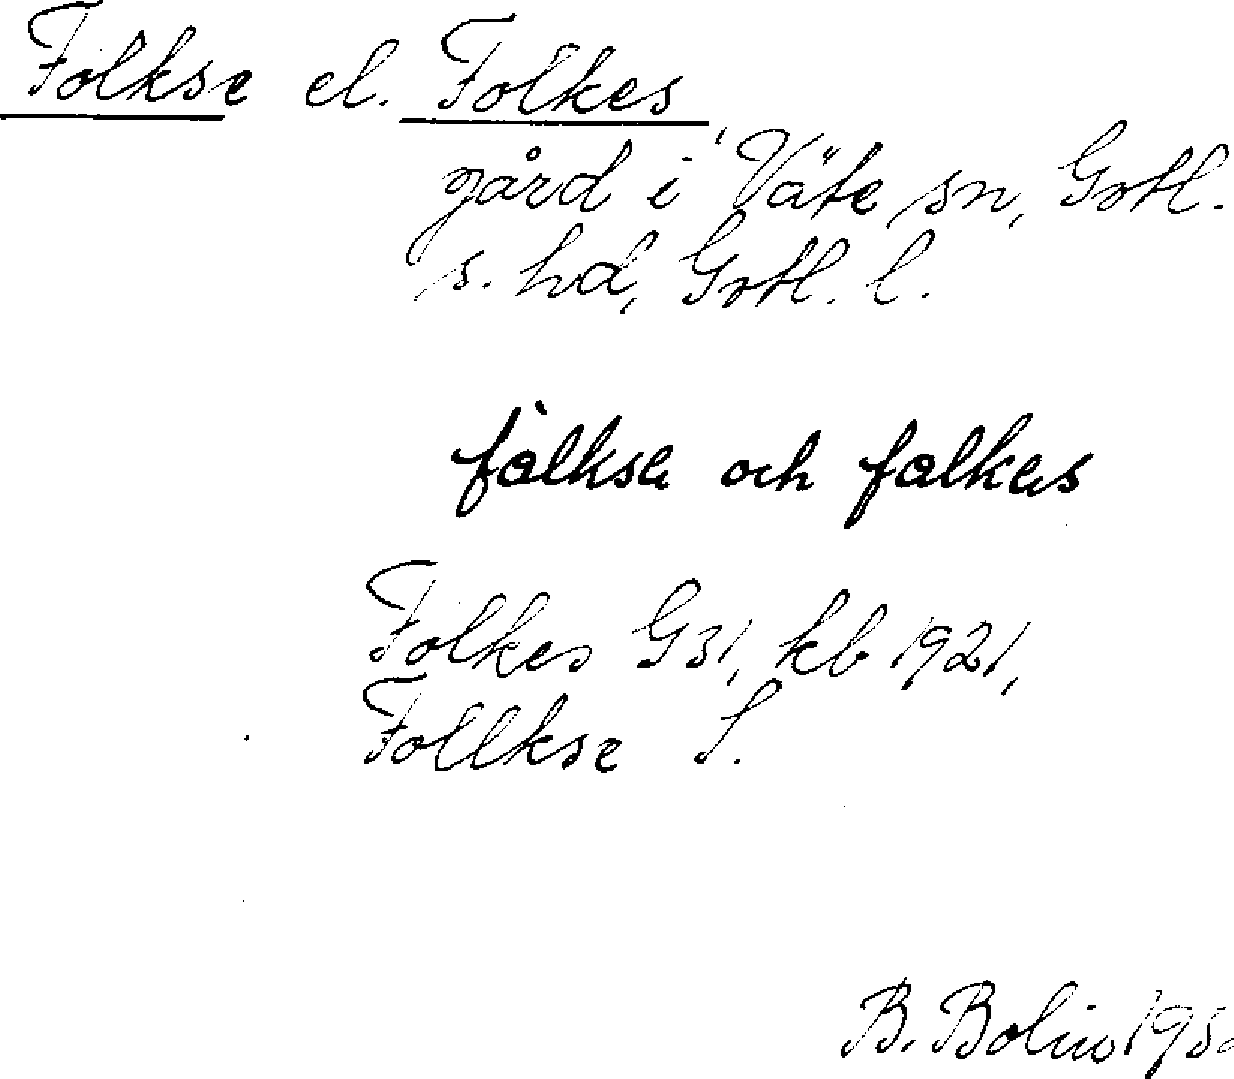 Folkse el. Folkes
gård i Väte sn, Gotl.
s. hd, Gotl. l.
fàlksa och falkas
Folkes G31, kb 1921,
Follkse S.
B. Bolin